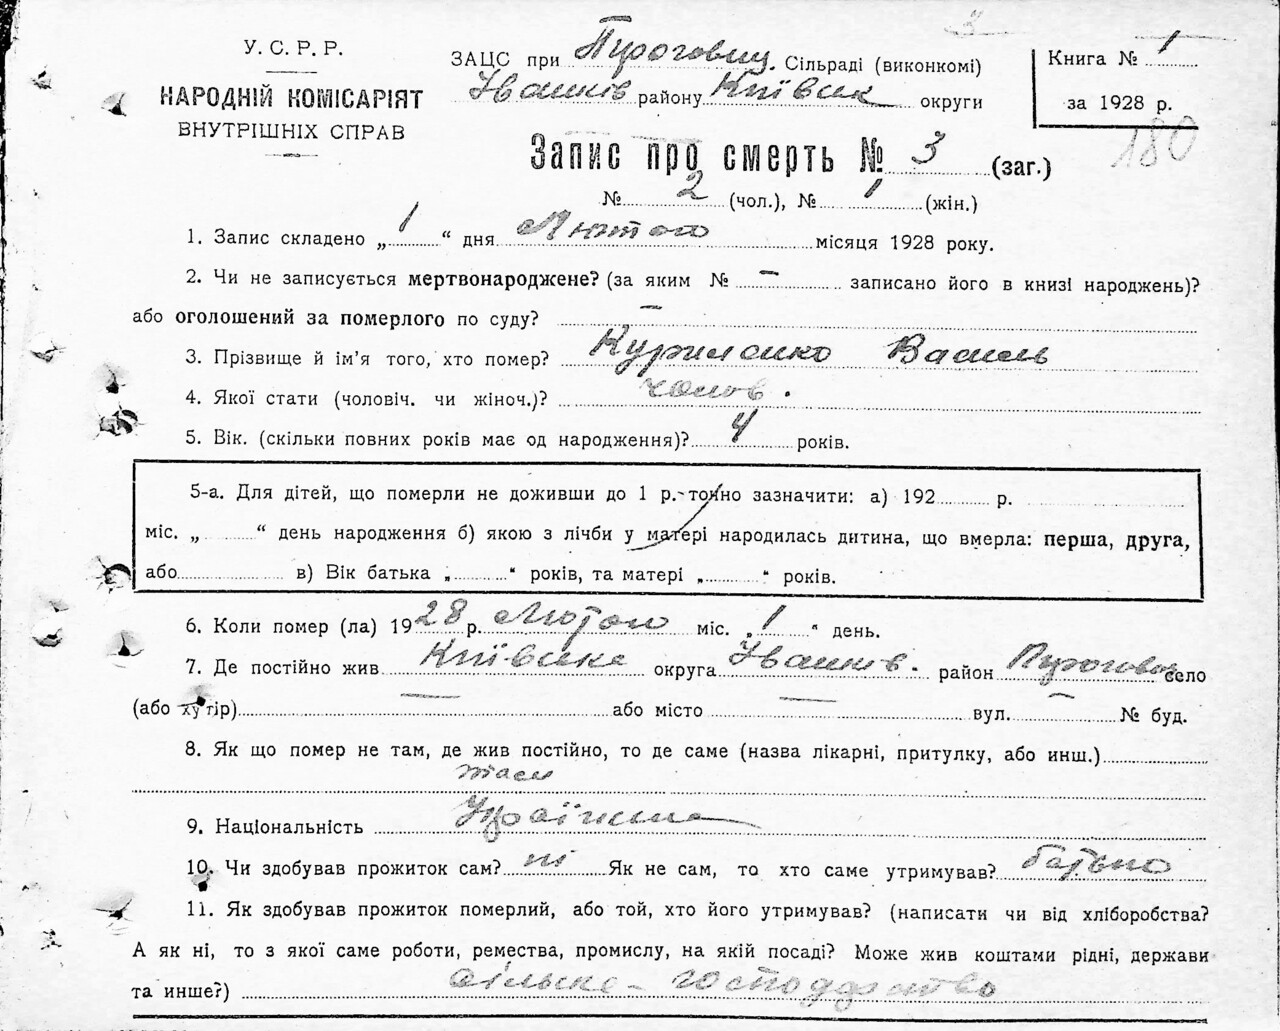 3
У. С. Р. Р.
НАРОДНІЙ КОМІСАРІЯТ
ВНУТРІШНІХ СПРАВ
ЗАЦС при Пироговиц. Сільраді (виконкомі)
Іванків району Київськ округи
Книга № 1
за 1928 р.
180
Запис про смерть № 3 (заг.)
№ 2 (чол.), № 1 (жін.)
1. Запис складено „ 1 “ дня Лютого місяця 1928 року.
2. Чи не записується мертвонароджене? (за яким № — записано його в книзі народжень)?
або оголошений за померлого по суду? —
3. Прізвище й ім’я того, хто помер? Куриленко Василь
4. Якої стати (чоловіч. чи жіноч.)? чолов.
5. Вік. (скільки повних років має од народження)? 4 років.
5-а. Для дітей, що померли не доживши до 1 р. точно зазначити: а) 192 р.
міс. „ “ день народження б) якою з лічби у матері народилась дитина, що вмерла: перша, друга,
або в) Вік батька „ “ років, та матері „ “ років.
6. Коли помер (ла) 1928 р. Лютого міс. „ 1 “ день.
7. Де постійно жив Київська округа Іванків. район Пирогович село
(або хутір) — або місто — вул. — № буд.
8. Як що помер не там, де жив постійно, то де саме (назва лікарні, притулку, або инш.)
там
9. Національність Українець
10. Чи здобував прожиток сам? ні Як не сам, то хто саме утримував? батько
11. Як здобував прожиток померлий, або той, хто його утримував? (написати чи від хліборобства?
А як ні, то з якої саме роботи, ремества, промислу, на якій посаді? Може жив коштами рідні, держави
та инше?) сільське-господарство